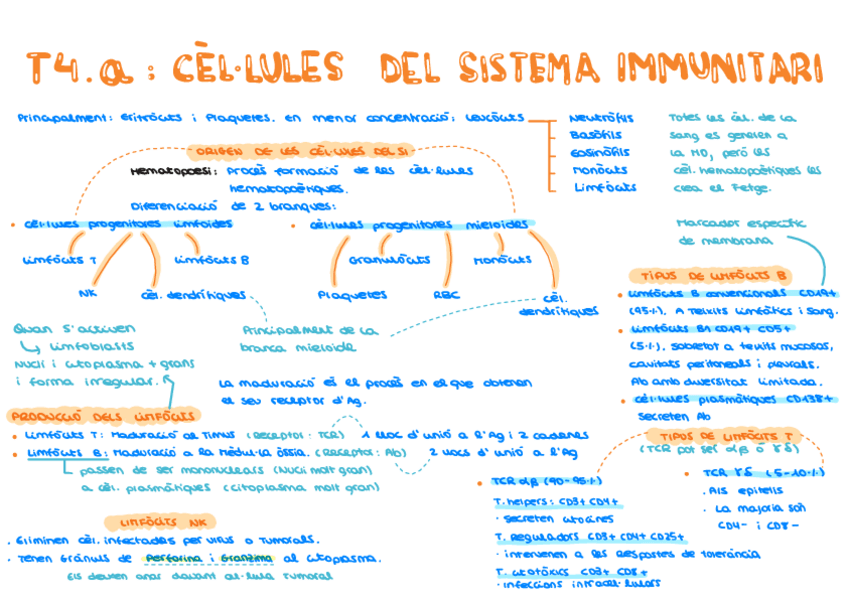 T4.a : CÈL·LULES DEL SISTEMA IMMUNITARI
Principalment: Eritròcits i Plaquetes. En menor concentració: Leucòcits
Neutròfils
Basòfils
Eosinòfils
Monòcits
Limfòcits
Totes les cèl. de la
sang es generen a
la MO, però les
cèl. hematopoètiques les
crea el Fetge.
ORIGEN DE LES CÈL·LULES DEL SI
Hematopoesi: Procés formació de les cèl·lules
hematopoètiques.
Diferenciació de 2 branques:
• cèl·lules progenitores limfoides
Limfòcits T
Limfòcits B
NK
cèl. dendrítiques
• cèl·lules progenitores mieloides
Granulòcits
Monòcits
Plaquetes
RBC
cèl.
dendrítiques
Principalment de la
branca mieloide
Marcador específic
de membrana
TIPUS DE LIMFÒCITS B
• Limfòcits B convencionals CD19+
(95%). A Teixits limfàtics i sang.
• Limfòcits B1 CD19+ CD5+
(5%). Sobretot a teixits mucosas,
cavitats peritoneals i pleurals.
Ab amb diversitat limitada.
• cèl·lules plasmàtiques CD138+
secreten Ab
Quan s'activen
limfoblasts
Nucli i citoplasma + grans
i forma irregular.
La maduració és el procés en el que obtenen
el seu receptor d'Ag.
PRODUCCIÓ DELS LIMFÒCITS
• Limfòcits T: Maduració al Timus (Receptor: TCR) 1 lloc d'unió a l'Ag i 2 cadenes
• Limfòcits B: Maduració a la Mèdul·la òssia. (Receptor: Ab) 2 llocs d'unió a l'Ag
passen de ser mononuclears (Nucli molt gran)
a cèl. plasmàtiques (citoplasma molt gran)
LIMFÒCITS NK
. Eliminen cèl. infectades per virus o tumorals.
. Tenen Grànuls de Perforina i Granzima al citoplasma.
Els deuen anar davant cèl·lula tumoral
TIPUS DE LIMFÒCITS T
(TCR pot ser αβ o γδ)
• TCR αβ (90-95%)
T. helpers: CD3+ CD4+
· secreten citocines
T. reguladors CD3+ CD4+ CD25+
· intervenen a les respostes de tolerància
T. citotòxics CD3+ CD8+
· infeccions intracel·lulars
• TCR γδ (5-10%)
. Als epitelis
. La majoria són
CD4- i CD8-